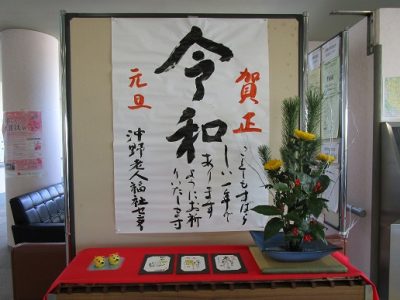 賀正
ことしもすばら
しい一年で
あります
ようにお祈
りいたします
令和
元旦
沖野老人福祉センター